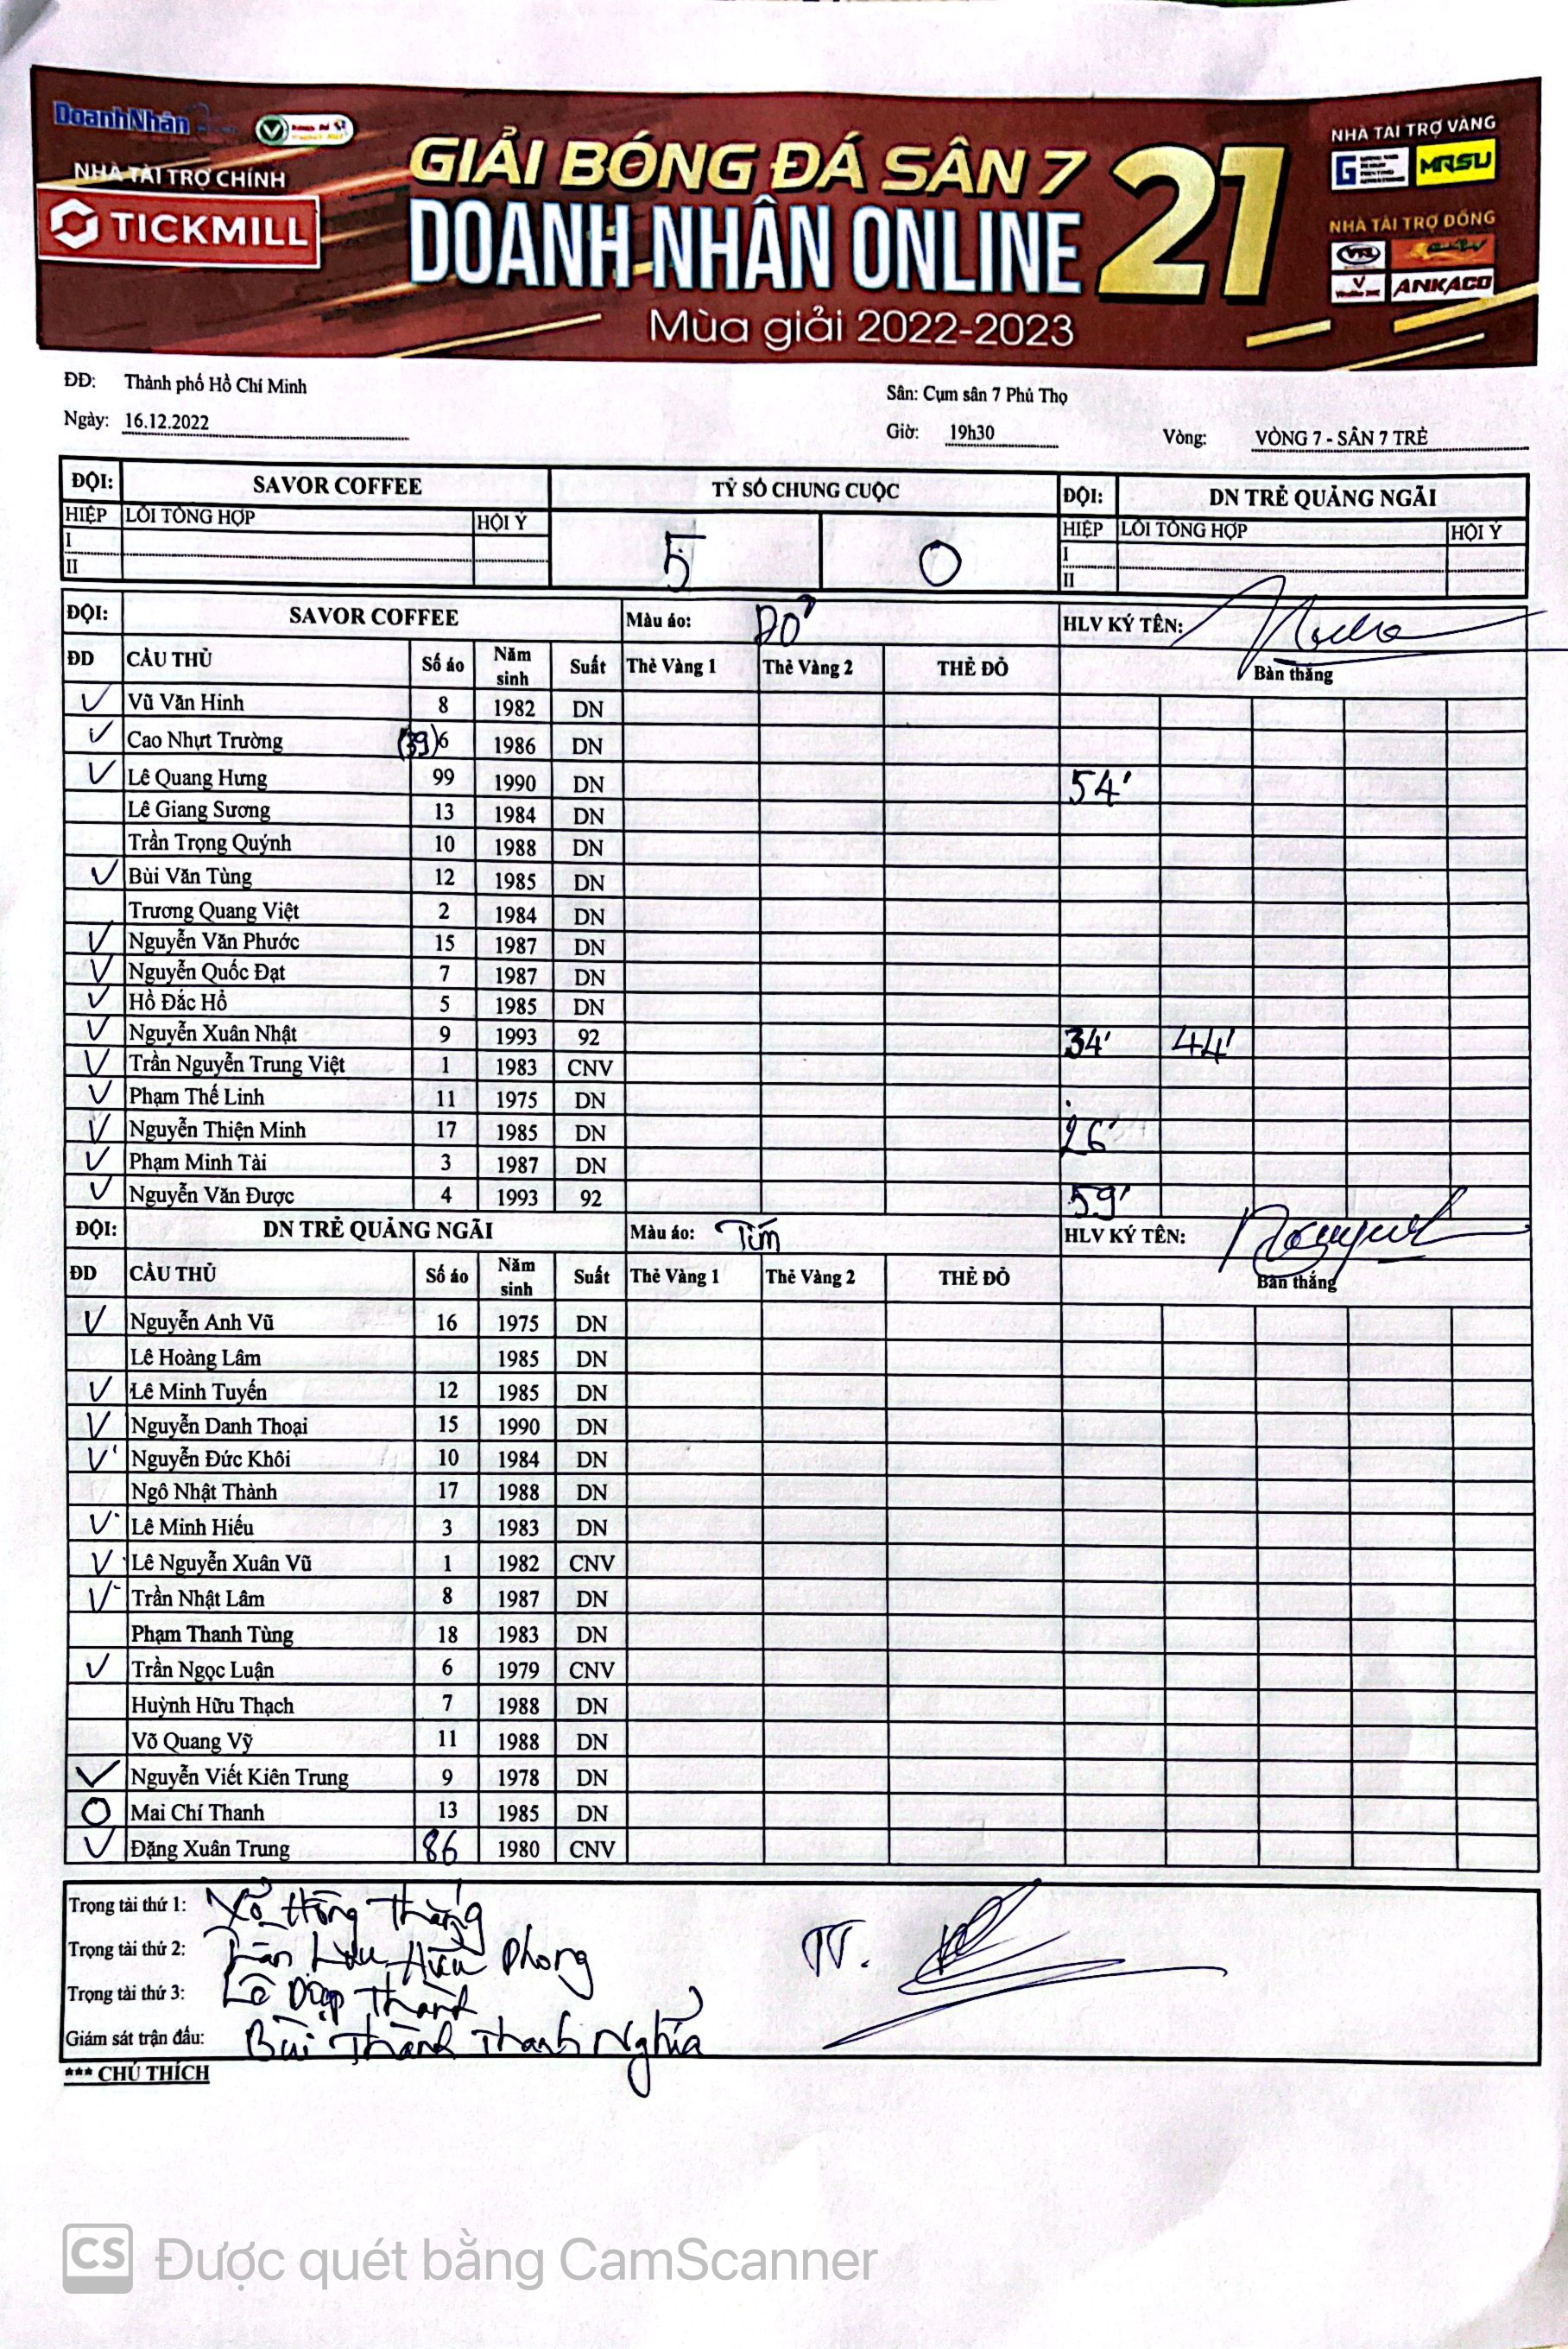 DoanhNhân
NHÀ TÀI TRỢ CHÍNH
TICKMILL
GIẢI BÓNG ĐÁ SÂN 7
DOANH NHÂN ONLINE 21
Mùa giải 2022-2023
NHÀ TÀI TRỢ VÀNG
G MRSU
NHÀ TÀI TRỢ ĐỒNG
ANKACO
ĐĐ: Thành phố Hồ Chí Minh Sân: Cụm sân 7 Phú Thọ
Ngày: 16.12.2022 Giờ: 19h30 Vòng: VÒNG 7 - SÂN 7 TRẺ
ĐỘI: SAVOR COFFEE TỶ SỐ CHUNG CUỘC ĐỘI: DN TRẺ QUẢNG NGÃI
HIỆP LỖI TỔNG HỢP HỘI Ý 5 0 HIỆP LỖI TỔNG HỢP HỘI Ý
I I
II II
ĐỘI: SAVOR COFFEE Màu áo: Đỏ HLV KÝ TÊN:
ĐD CẦU THỦ Số áo Năm sinh Suất Thẻ Vàng 1 Thẻ Vàng 2 THẺ ĐỎ Bàn thắng
✓ Vũ Văn Hinh 8 1982 DN
✓ Cao Nhựt Trường (39) 6 1986 DN
✓ Lê Quang Hưng 99 1990 DN 54'
Lê Giang Sương 13 1984 DN
Trần Trọng Quýnh 10 1988 DN
✓ Bùi Văn Tùng 12 1985 DN
Trương Quang Việt 2 1984 DN
✓ Nguyễn Văn Phước 15 1987 DN
✓ Nguyễn Quốc Đạt 7 1987 DN
✓ Hồ Đắc Hổ 5 1985 DN
✓ Nguyễn Xuân Nhật 9 1993 92 34' 44'
✓ Trần Nguyễn Trung Việt 1 1983 CNV
✓ Phạm Thế Linh 11 1975 DN
✓ Nguyễn Thiện Minh 17 1985 DN 26'
✓ Phạm Minh Tài 3 1987 DN
✓ Nguyễn Văn Được 4 1993 92 59'
ĐỘI: DN TRẺ QUẢNG NGÃI Màu áo: Tím HLV KÝ TÊN:
ĐD CẦU THỦ Số áo Năm sinh Suất Thẻ Vàng 1 Thẻ Vàng 2 THẺ ĐỎ Bàn thắng
✓ Nguyễn Anh Vũ 16 1975 DN
Lê Hoàng Lâm 1985 DN
✓ Lê Minh Tuyến 12 1985 DN
✓ Nguyễn Danh Thoại 15 1990 DN
✓ Nguyễn Đức Khôi 10 1984 DN
Ngô Nhật Thành 17 1988 DN
✓ Lê Minh Hiếu 3 1983 DN
✓ Lê Nguyễn Xuân Vũ 1 1982 CNV
✓ Trần Nhật Lâm 8 1987 DN
Phạm Thanh Tùng 18 1983 DN
✓ Trần Ngọc Luận 6 1979 CNV
Huỳnh Hữu Thạch 7 1988 DN
Võ Quang Vỹ 11 1988 DN
✓ Nguyễn Viết Kiên Trung 9 1978 DN
O Mai Chí Thanh 13 1985 DN
✓ Đặng Xuân Trung 86 1980 CNV
Trọng tài thứ 1: Hồng Thắng
Trọng tài thứ 2: Trần Lưu Hiếu Phong TT.
Trọng tài thứ 3: Lê Diệp Thành
Giám sát trận đấu: Bùi Thành Thanh Nghĩa
*** CHÚ THÍCH
CS Được quét bằng CamScanner